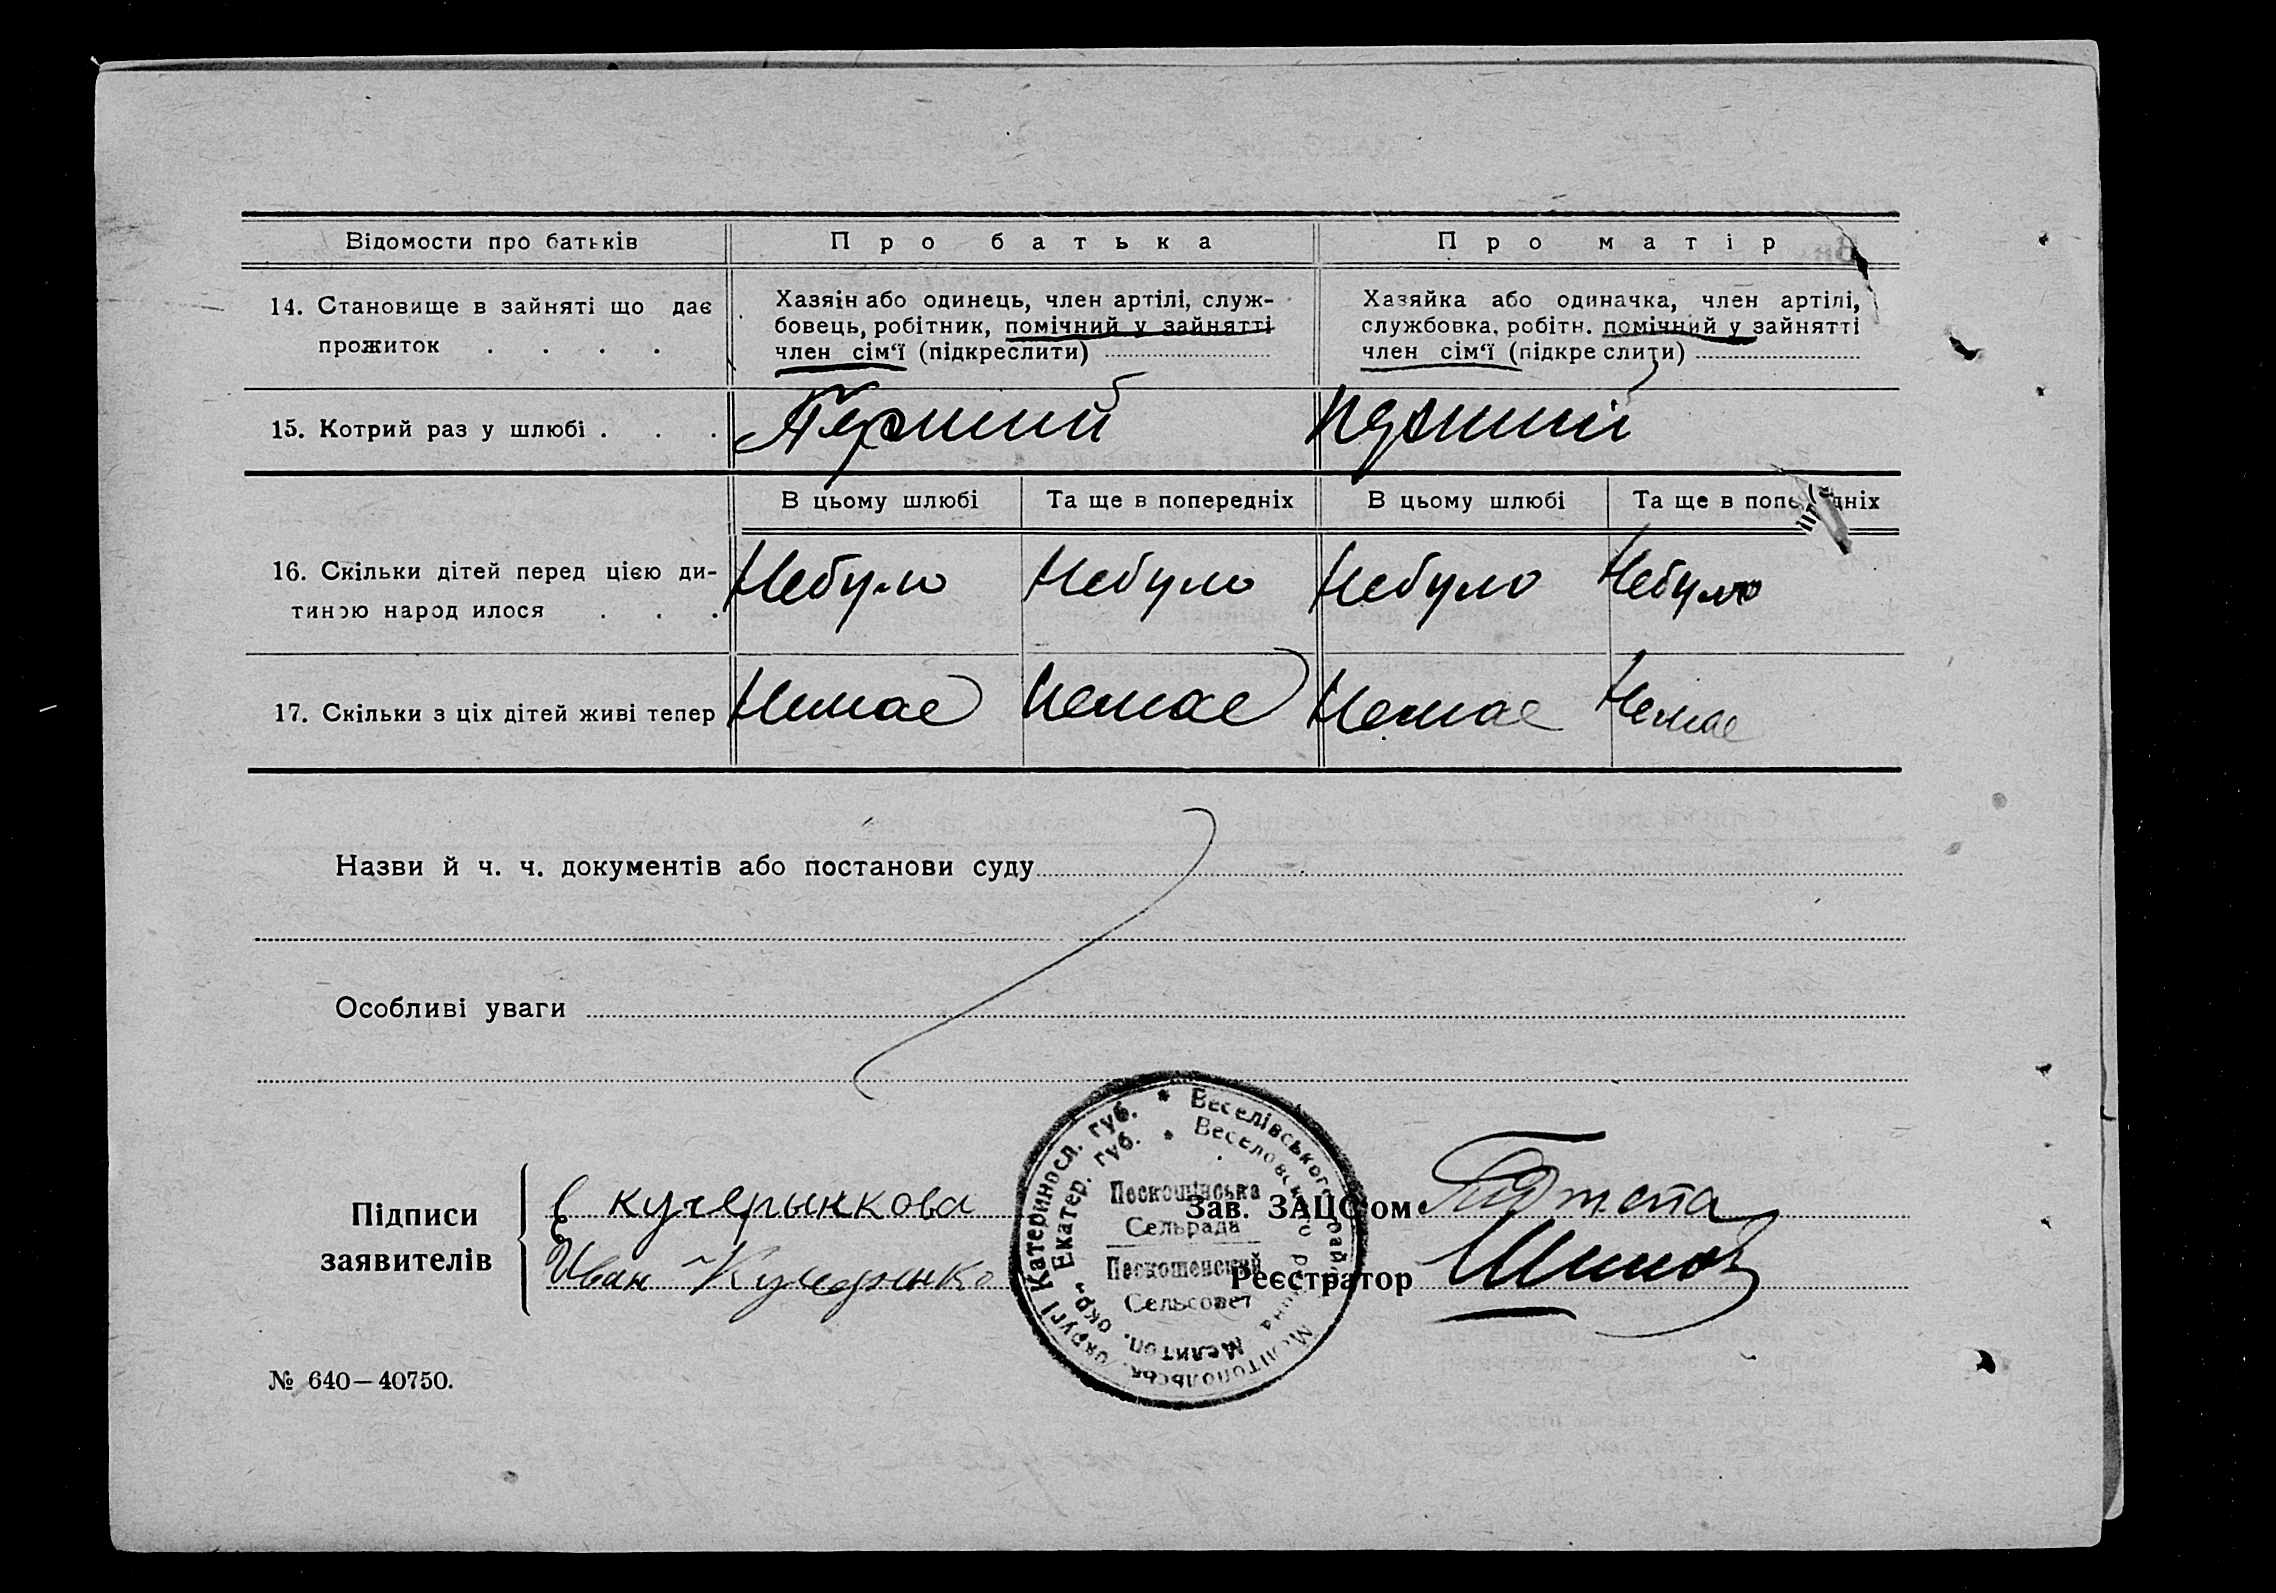 Відомости про батьків
Про батька
Про матір
14. Становище в зайняті що дає
прожиток . . . .
Хазяін або одинець, член артілі, служ-
бовець, робітник, помічний у зайнятті
член сім‘ї (підкреслити)
Хазяйка або одиначка, член артілі,
службовка, робітн. помічний у зайнятті
член сім‘ї (підкреслити)
15. Котрий раз у шлюбі . . .
Перший
Перший
В цьому шлюбі
Та ще в попередніх
В цьому шлюбі
Та ще в попередніх
16. Скільки дітей перед цією ди-
тиною народилося . . .
Небуло
Небуло
Небуло
Небуло
17. Скільки з ціх дітей живі тепер
Немае
Немае
Немае
Немае
Назви й ч. ч. документів або постанови суду
Особливі уваги
Підписи
заявителів
Є кучерынкова
Иван Кучеренко
Зав. ЗАЦС‘ом
Реєстратор
* Веселівського району Мелітопольськ. округі Катериносл. губ.
* Веселовского района Мелитоп. окр., Екатер. губ.
Пескошінська
Сельрада
Пескошенский
Сельсовет
№ 640—40750.